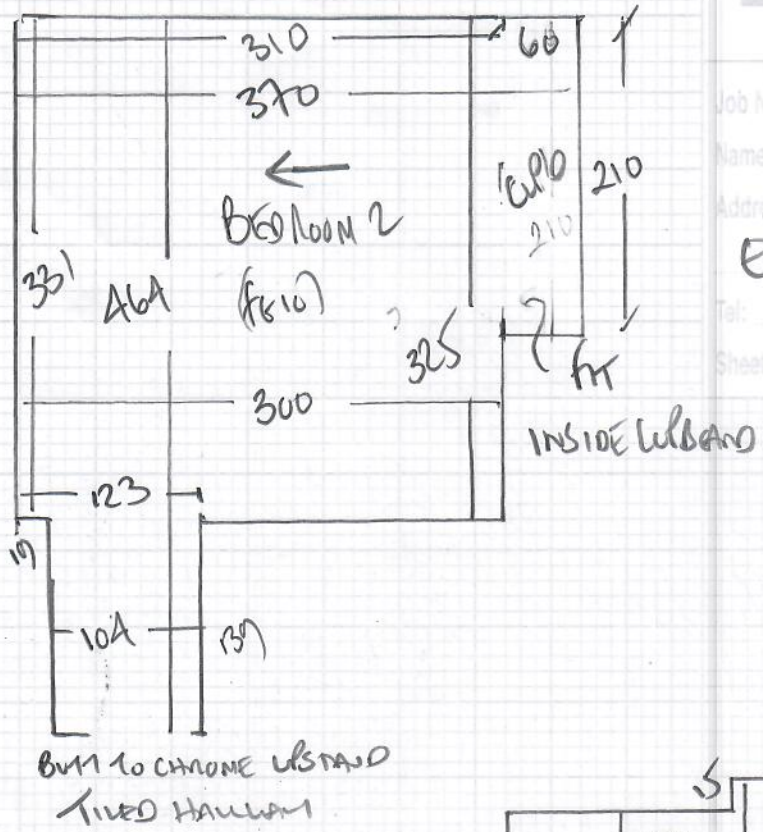 310
60
370
CUPD
210
210
BEDROOM 2
331
464
325
FIT
INSIDE CUPBOARD
300
123
19
104
139
BUTT TO CHROME UPSTAND
TILED HALLWAY
Job N
Name
Addre
E
Tel:
Sheet
.5